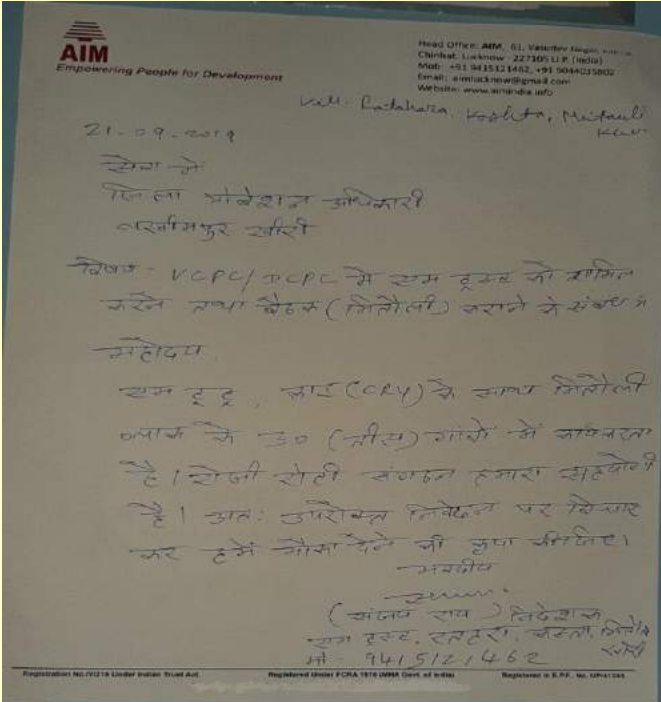 AIM
Empowering People for Development
Head Office: AIM, 61, Vasudev Nagar,
Chinhat, Lucknow - 227105 U.P. (India)
Mob: +91 9415121462, +91 9044035802
Email: aimlucknow@gmail.com
Website: www.aimindia.info
Vill- Ratahara, Kashta, Mitauli
21-09-2019
सेवा में
जिला प्रोबेशन अधिकारी
लखीमपुर खीरी
विषय - VCPC/BCPC में एम ट्रस्ट को शामिल
करने तथा बैठक (मितौली) कराने के संबंध में
महोदय,
एम ट्रस्ट, क्राई (CRY) के साथ मितौली
ब्लाक के 30 (तीस) गांवों में कार्य करता
है। रोजी रोटी संगठन हमारा सहयोगी
है। अत: उपरोक्त निवेदन पर विचार
कर हमें मौका देने की कृपा कीजिए।
भवदीय
(संजय राय) निदेशक
एम ट्रस्ट, रतहरा, कस्ता, मितौली
खीरी
मो - 9415121462
Registration No. IV/218 Under Indian Trust Act.
Registered Under FCRA 1976 (MHA Govt. of India)
Registered in E.P.F., No. UP/41345